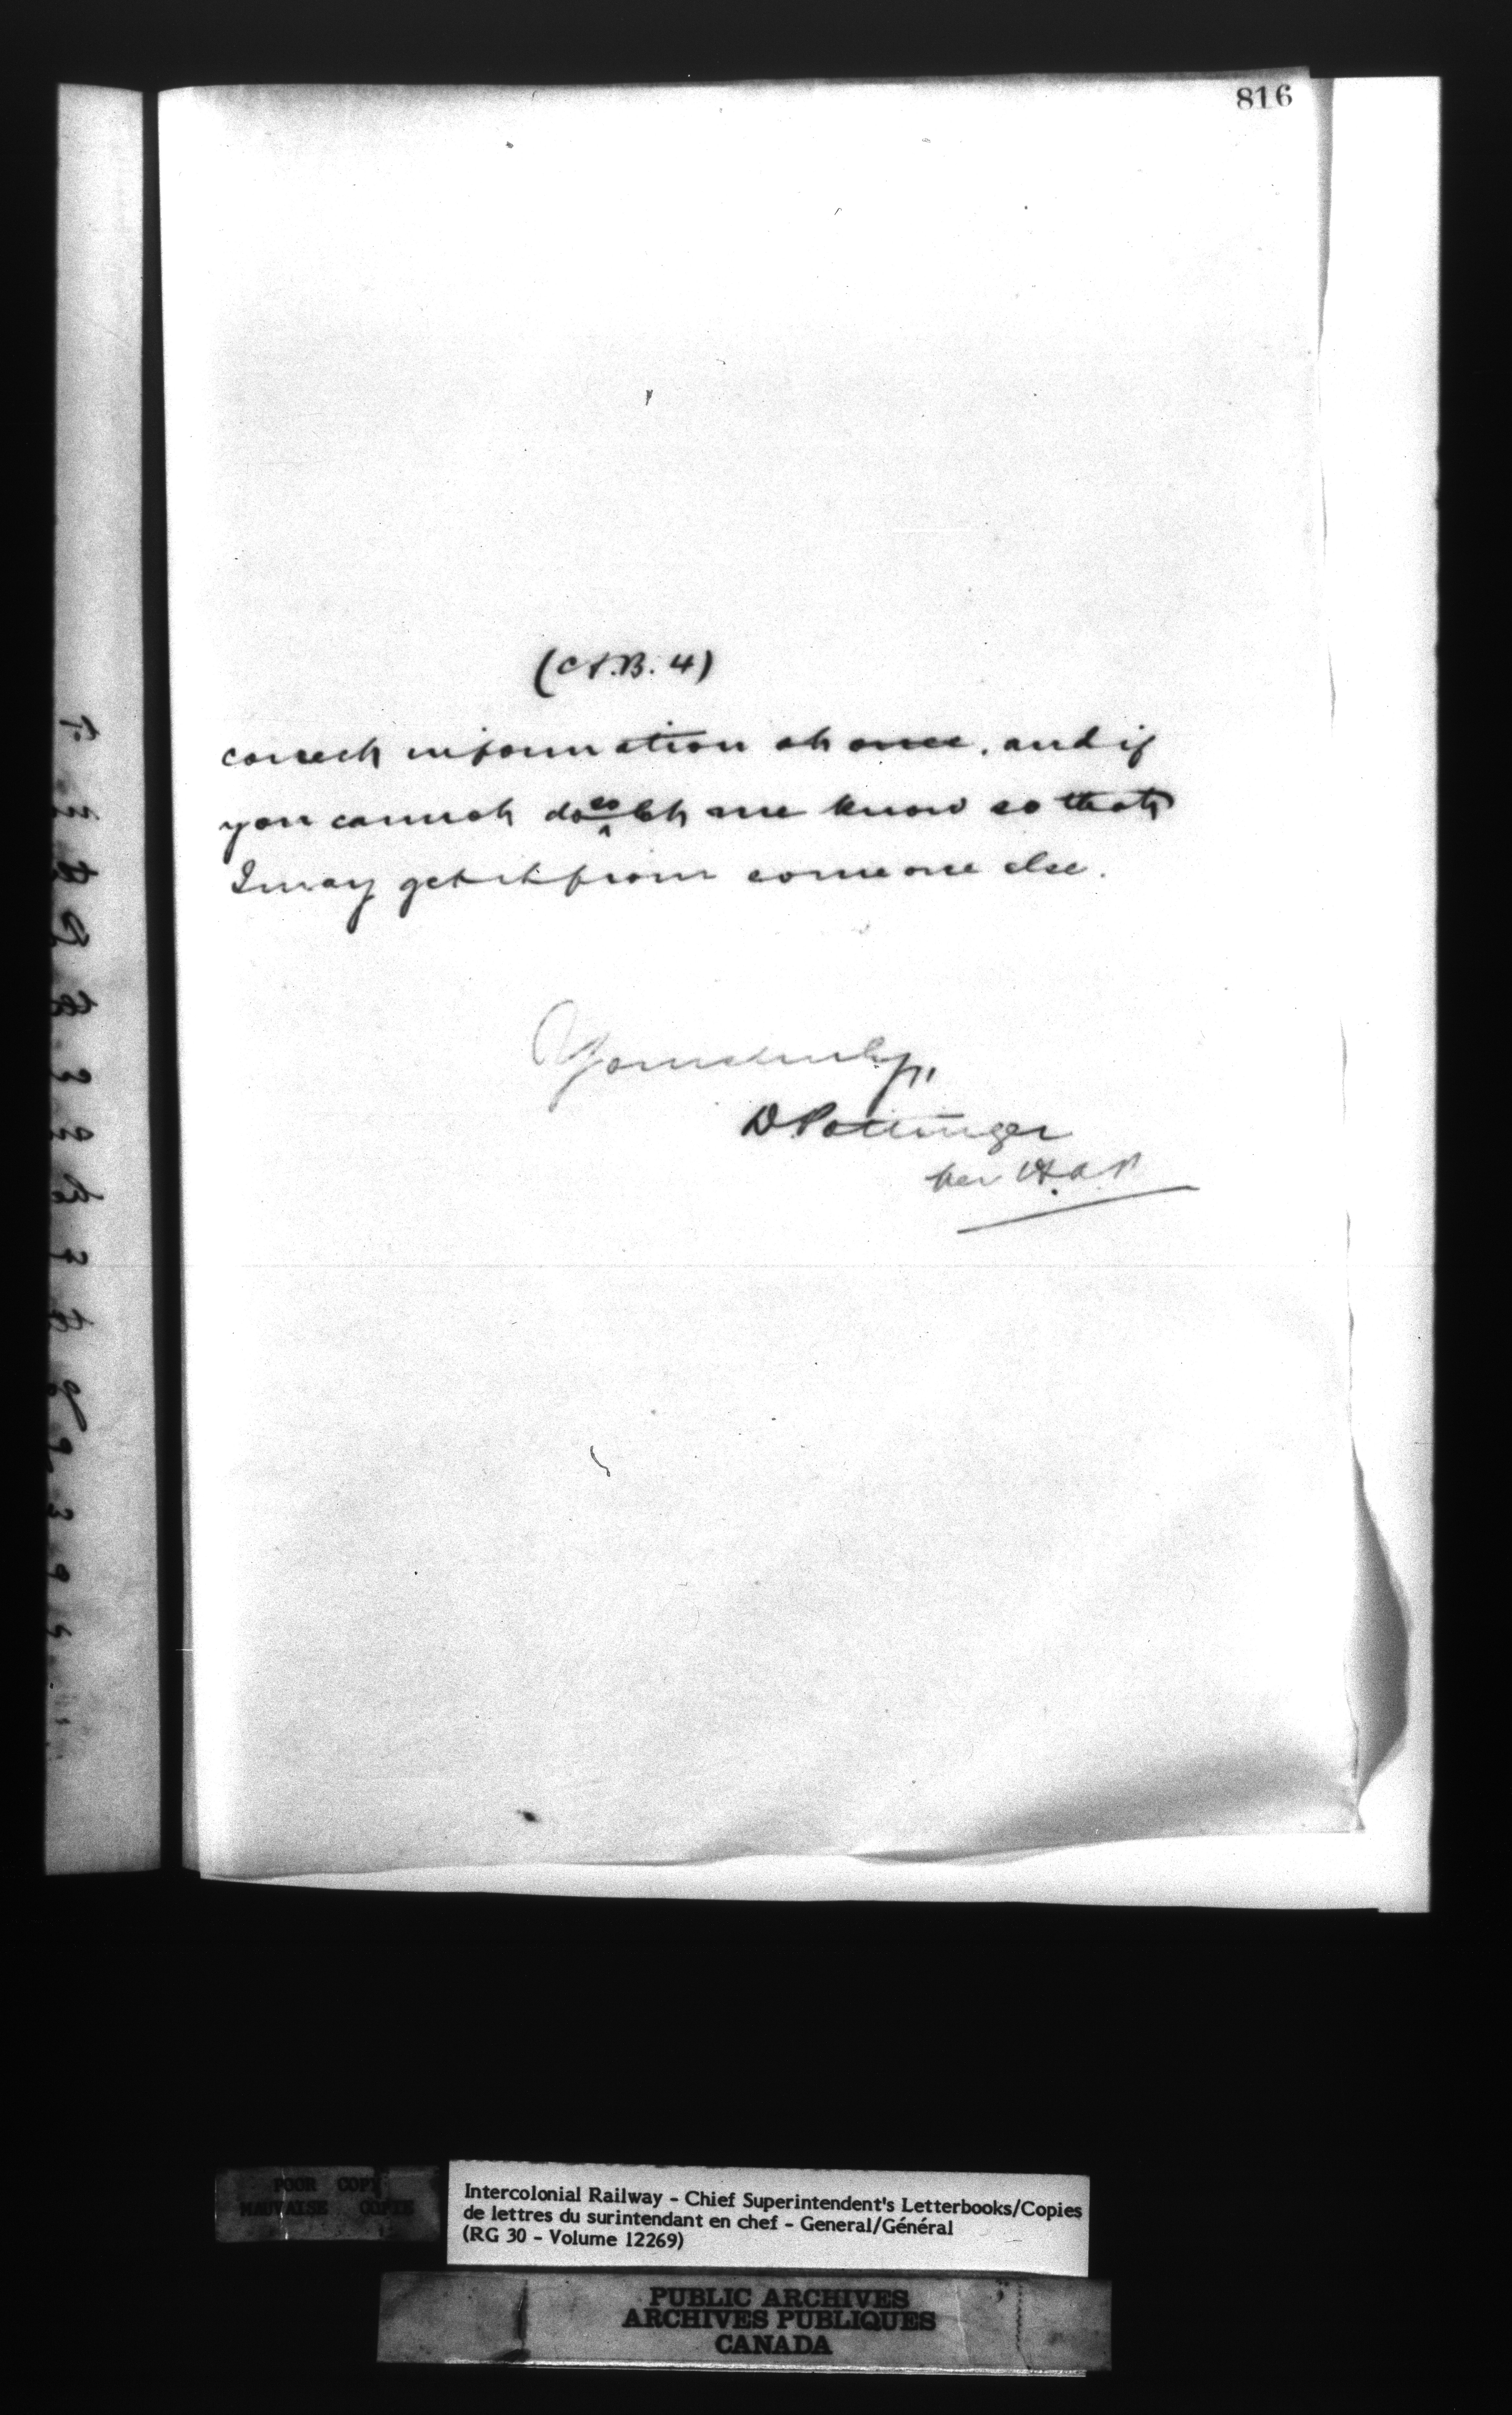 816
(C.S.B. 4)
correct information at once, and if
you cannot do so let me know so that
I may get it from someone else.
Yours truly,
D Pottinger
per
POOR COPY
MAUVAISE COPIE
Intercolonial Railway - Chief Superintendent's Letterbooks/Copies
de lettres du surintendant en chef - General/Général
(RG 30 - Volume 12269)
PUBLIC ARCHIVES
ARCHIVES PUBLIQUES
CANADA